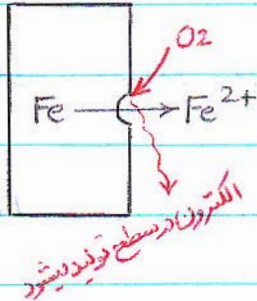 O2
Fe → Fe2+
الکترون در سطح تولید میشود